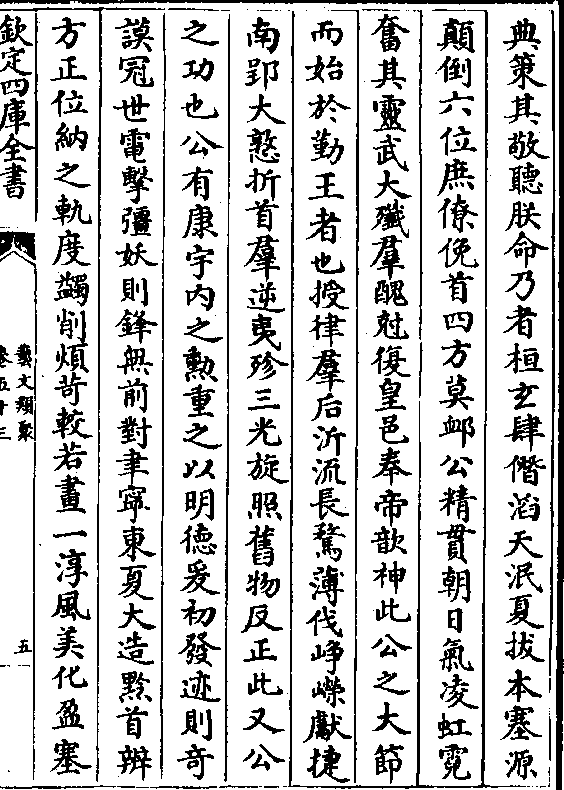 典策其敬聽朕命乃者桓玄肆僭滔天泯夏拔本塞源
顛倒六位庶僚俛首四方莫䘏公精貫朝日氣凌虹霓
奮其靈武大殲羣醜尅復皇邑奉帝歆神此公之大節
而始於勤王者也授律羣后沂流長騖薄伐崢嶸獻捷
南郢大憝折首羣逆夷殄三光旋照舊物反正此又公
之功也公有康宇内之勲重之以明德爰初發迹則奇
謨冠世電擊彊妖則鋒無前對聿寧東夏大造黔首辨
方正位納之軌度蠲削煩苛較若畫一淳風美化盈塞
欽定四庫全書
藝文類聚
卷五十三
五